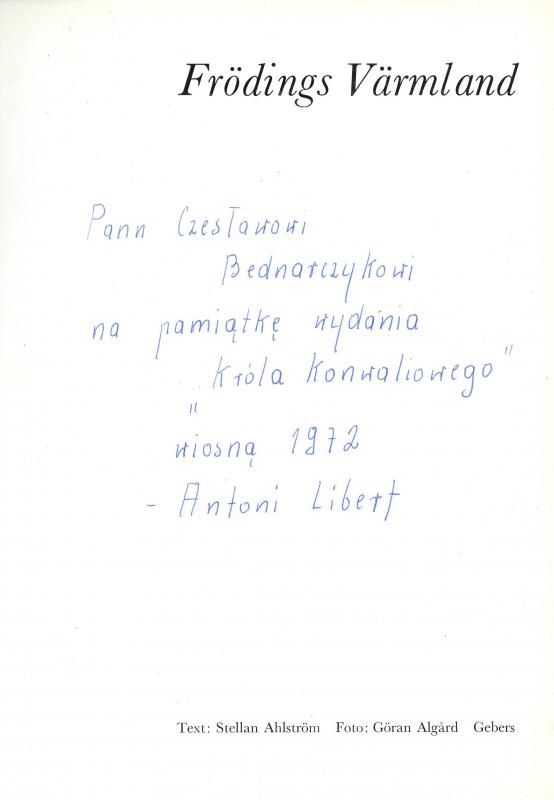 Frödings Värmland
Panu Czesławowi
Bednarczykowi
na pamiątkę wydania
„Króla Konwaliowego"
wiosną 1972
- Antoni Libert
Text: Stellan Ahlström Foto: Göran Algård Gebers